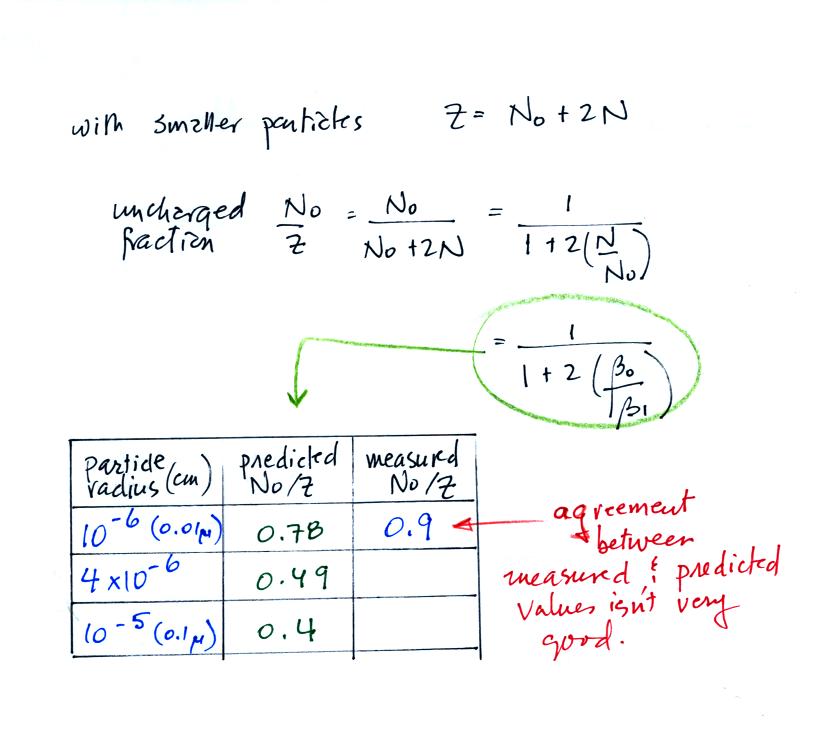 with smaller particles Z = No + 2N
uncharged fraction No/Z = No/(No + 2N) = 1/(1 + 2(N/No))
= 1/(1 + 2(β0/β1))
particle radius (cm) predicted No/Z measured No/Z
10^-6 (0.01μ) 0.78 0.9
4 x10^-6 0.49
10^-5 (0.1μ) 0.4
agreement
between
measured & predicted
values isn't very
good.